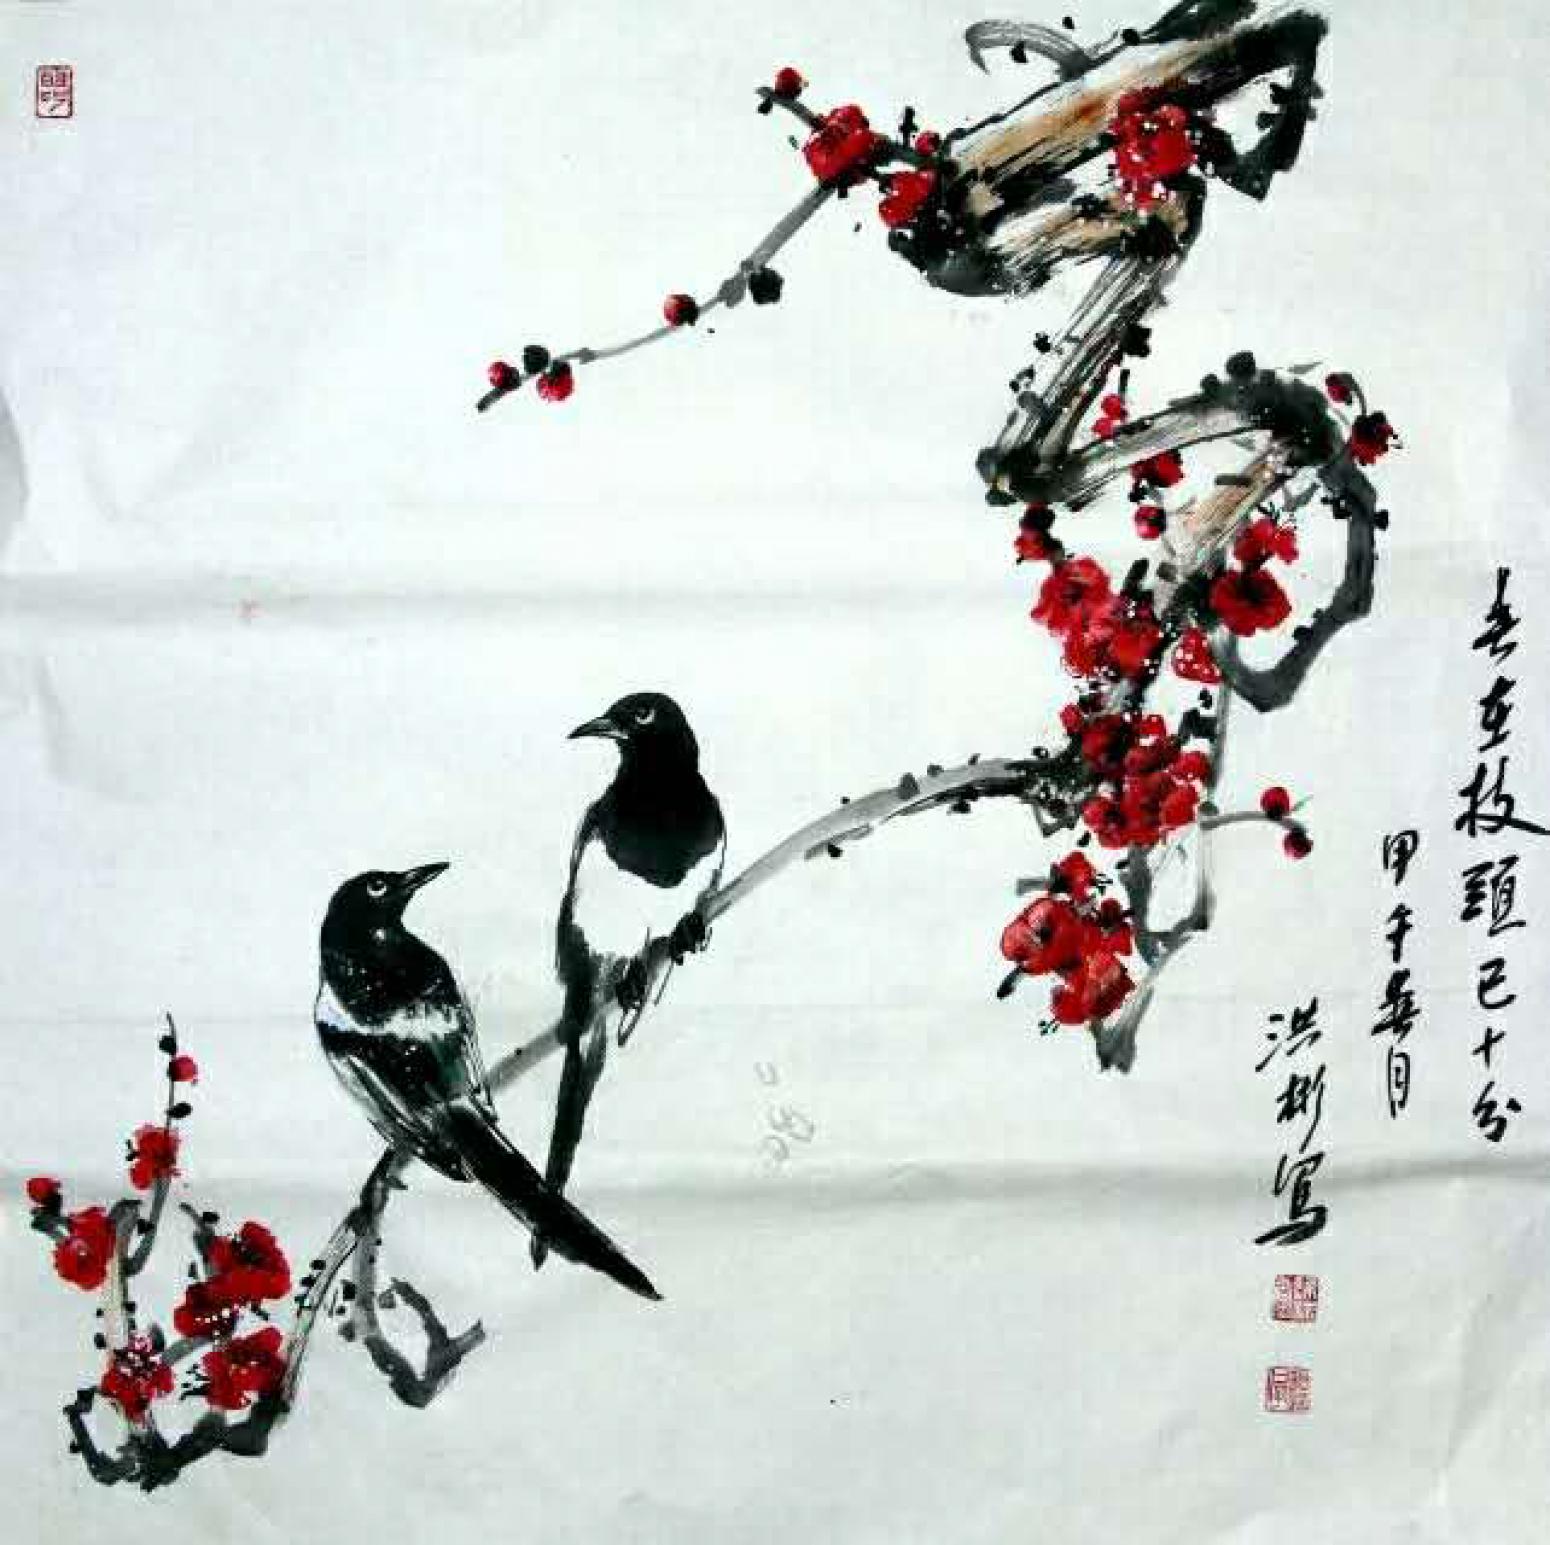 春在枝頭已十分
甲午春月
洪彬写